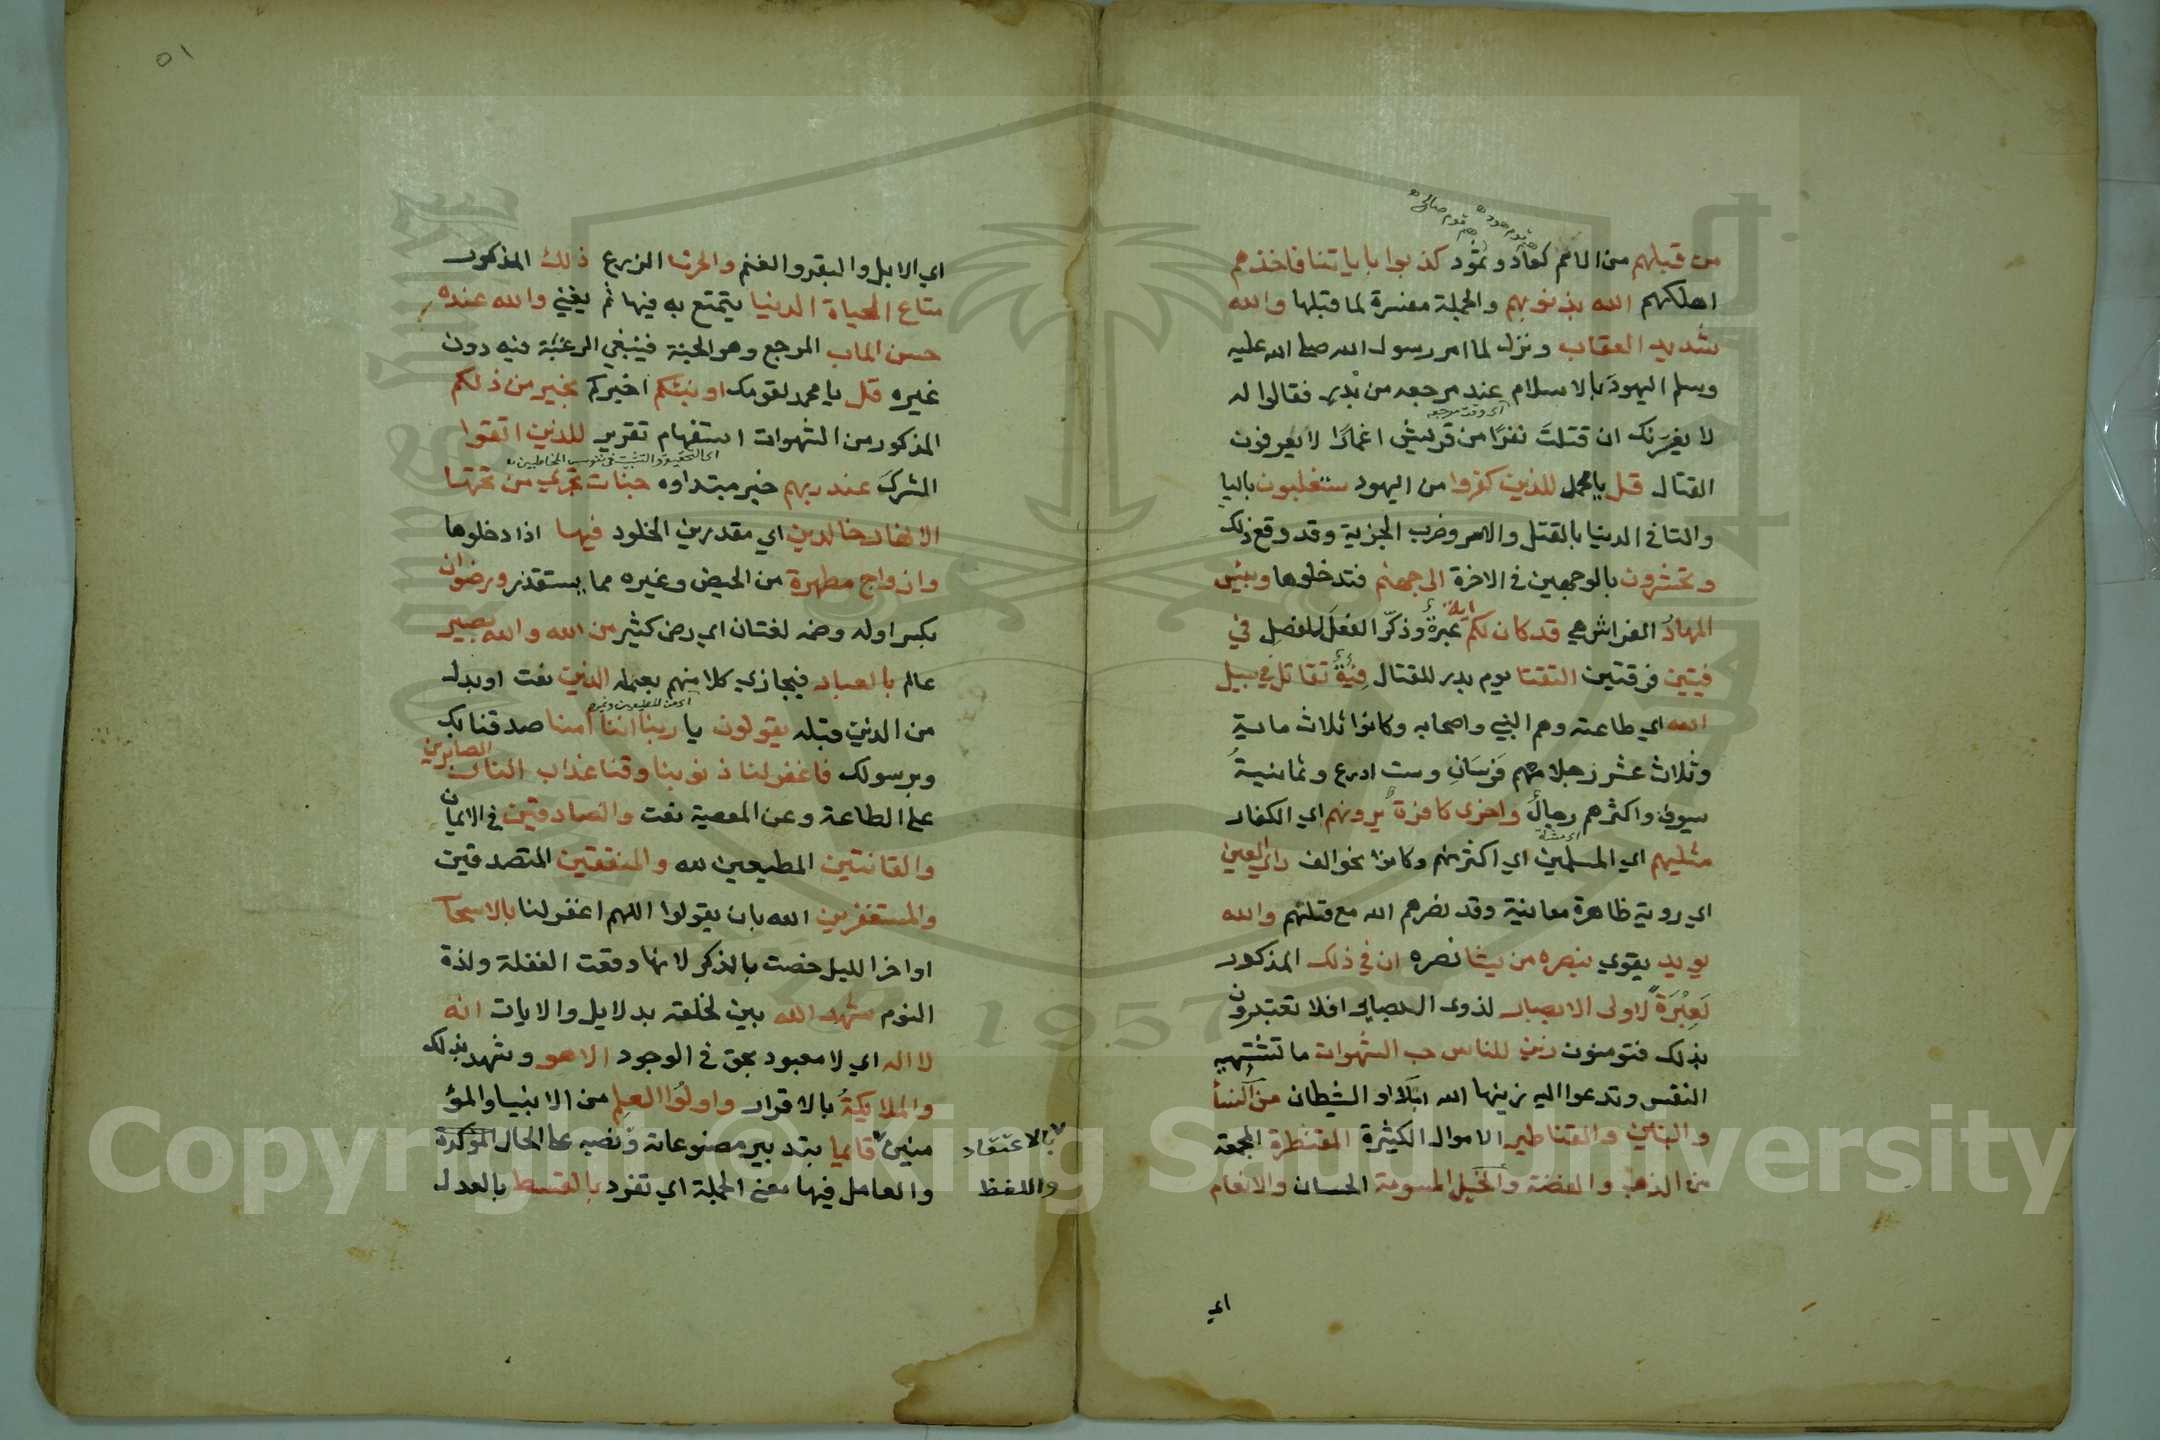 هم قوم هود هم قوم صالح
من قبلهم من الامم كعاد وثمود كذبوا باياتنا فاخذهم
اهلكهم الله بذنوبهم والجملة مفسرة لما قبلها والله
شديد العقاب ونزل لما امر رسول الله صلى الله عليه
وسلم اليهود بالاسلام عند مرجعه من بدر فقالوا له
اي وقت مرجعه
لا يغرنك ان قتلت نفرا من قريش اغمارا لا يعرفون
القتال قل يا محمد للذين كفروا من اليهود ستغلبون باليا
والتا في الدنيا بالقتل والاسر وضرب الجزية وقد وقع ذلك
وتحشرون بالوجهين في الاخرة الى جهنم فتدخلوها وبيس
المهاد الفراش هي قد كان لكم اية عبرة وذكر الفعل للفصل في
فيتين فرقتين التقتا يوم بدر للقتال فئة تقاتل في سبيل
الله اي طاعته وهم النبي واصحابه وكانوا ثلاث ماية
وثلاث عشر رجلا معهم فرسان وست ادرع وثمانية
سيوف واكثرهم رجال واخرى كافرة يرونهم اي الكفار
مثليهم اي المسلمين اي اكثر منهم وكانوا نحو الف راي العين
اي روية ظاهرة معاينة وقد نصرهم الله مع قلتهم والله
يويد يقوي بنصره من يشا نصره ان في ذلك المذكور
لعبرة لاولى الابصار لذوى البصاير افلا تعتبرون
بذلك فتومنون زين للناس حب الشهوات ما تشتهيه
النفس وتدعوا اليه زينها الله ابتلا او الشيطان من النسا
والبنين والقناطير الاموال الكثيرة المقنطرة المجمعة
من الذهب والفضة والخيل المسومة الحسان والانعام
اي
٥١
اي الابل والبقر والغنم والحرث الزرع ذلك المذكور
متاع الحياة الدنيا يتمتع به فيها ثم يفني والله عنده
حسن الماب المرجع وهو الجنة فينبغي الرغبة فيه دون
غيره قل يا محمد لقومك اونبئكم اخبركم بخير من ذلكم
المذكور من الشهوات استفهام تقرير للذين اتقوا
اي التحقيق والتثبيت في نفوس المخاطبين
الشرك عند ربهم خبر مبتداوه جنات تجري من تحتها
الانهار خالدين اي مقدرين الخلود فيها اذا دخلوها
وازواج مطهرة من الحيض وغيره مما يستقذر ورضوان
بكسر اوله وضمه لغتان اي رضى كثير من الله والله بصير
عالم بالعباد فيجازي كلا منهم بعمله الذين نعت او بدل
من الذين قبله يقولون يا ربنا اننا امنا صدقنا بك
وبرسولك فاغفر لنا ذنوبنا وقنا عذاب النار الصابرين
على الطاعة وعن المعصية نعت والصادقين في الايمان
والقانتين المطيعين لله والمنفقين المتصدقين
والمستغفرين الله بان يقولوا اللهم اغفر لنا بالاسحار
اواخر الليل خصت بالذكر لانها وقت الغفلة ولذة
النوم شهد الله بين لخلقه بدلايل والايات انه
لا اله اي لا معبود بحق في الوجود الا هو وشهد بذلك
والملايكة بالاقرار واولوا العلم من الانبيا والمؤ
منين قايما بتدبير مصنوعاته ونصبه على الحال المؤكدة
بالاعتقاد
والعامل فيها معنى الجملة اي تفرد بالقسط بالعدل
واللفظ
1957
Copyright © King Saud University